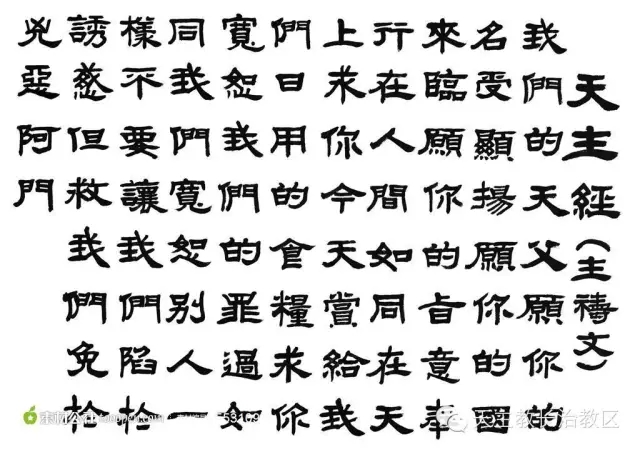 天主經(主禱文)
我們的天父願你的
名受顯揚願你的國
來臨願你的旨意奉
行在人間如同在天
上求你今天賞給我
們日用的食糧求你
寬恕我們的罪過
同我們寬恕别人
樣不要讓我們陷於
誘惑但救我們免於
兇惡阿門
天主教长治教区